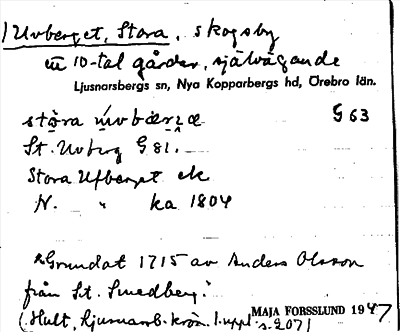 ) Uvberget, Stora, skogsby
ett 10-tal gårdar, självägande
Ljusnarsbergs sn, Nya Kopparbergs hd, Örebro län.
störa ùvbærᶎæ G 63
St. Uvberg G 81.
Stora Ufberget ek
N. " ka 1804
"Grundat 1715 av Anders Olsson
från St. Smedberg."
(Hult, Ljusnarsb. krön. 1. uppl.
s. 207)
MAJA FORSSLUND 1947